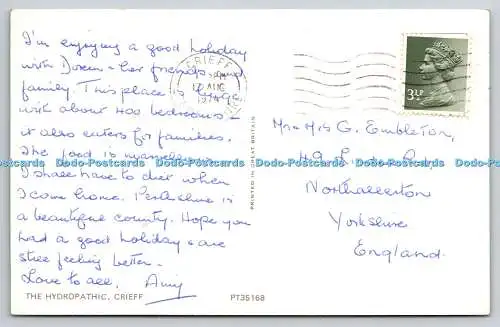 I'm enjoying a good holiday
with Doreen & her friends and
family. This place is huge
with about 400 bedrooms -
it also caters for families.
The food is
I shall have to diet when
I come home. Perthshire is
a beautiful county. Hope you
had a good holiday & are
still feeling better.
Love to all, Amy
THE HYDROPATHIC, CRIEFF
PT35168
PRINTED IN GREAT BRITAIN
CRIEFF
AUG
1974
3½P
Mr & Mrs G. Embleton,
49
Northallerton
Yorkshire
England.
Dodo-Postcards Dodo-Postcards Dodo-Postcards Dodo-Postcards Dodo-Postcards